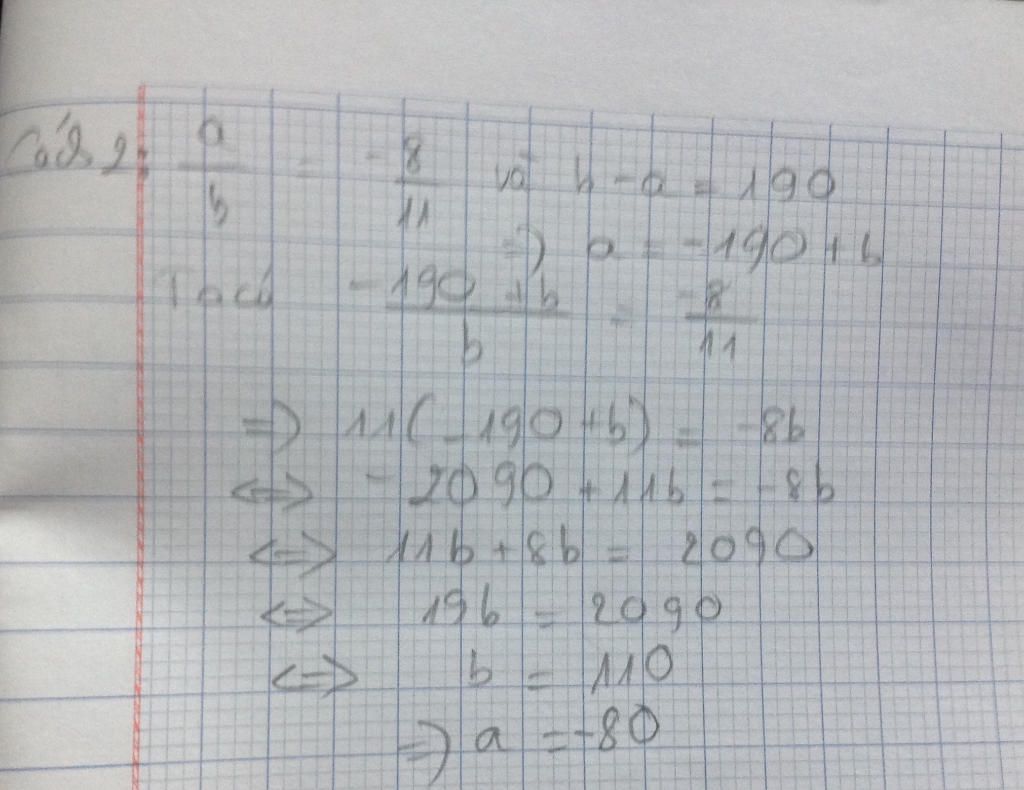 Cách 2: a/b = -8/11 và b - a = 190
=> a = -190 + b
Ta có -190 + b / b = -8/11
=> 11(-190 + b) = -8b
<=> -2090 + 11b = -8b
<=> 11b + 8b = 2090
<=> 19b = 2090
<=> b = 110
=> a = -80